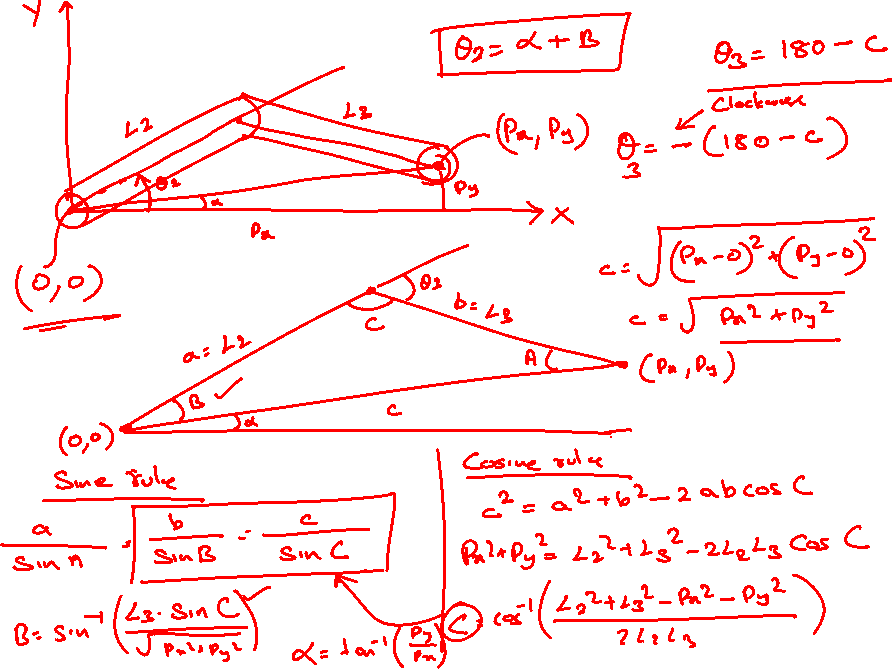 Y
θ2 = α + B
θ3 = 180 - C
Clockwise
θ3 = - (180 - C)
L2
L3
(Px, Py)
θ2
α
Py
Px
X
(0,0)
c = √((Px-0)² + (Py-0)²)
c = √(Px² + Py²)
a = L2
C
b = L3
B ✓
A
(Px, Py)
c
α
(0,0)
Sine rule
a/Sin A = b/Sin B = c/Sin C
B = Sin⁻¹ (L3 · Sin C / √(Px²+Py²)) ✓
α = tan⁻¹ (Py/Px)
Cosine rule
c² = a² + b² - 2 ab cos C
Px²+Py² = L2² + L3² - 2L2L3 Cos C
C = cos⁻¹ ((L2² + L3² - Px² - Py²) / 2L2L3)